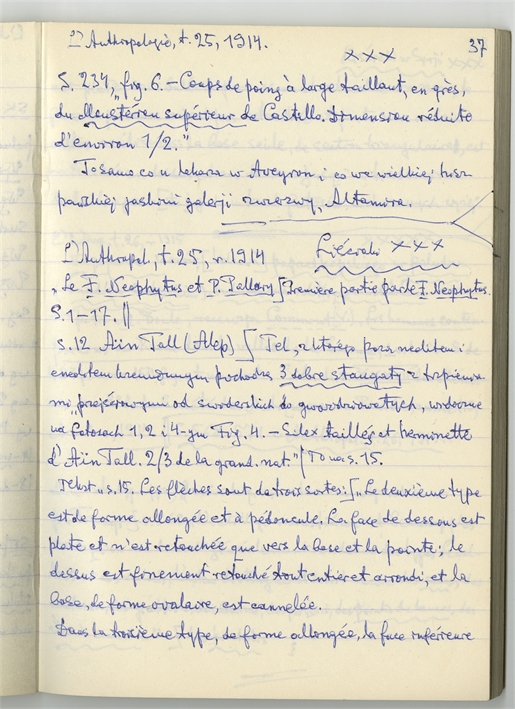 L'Anthropologie, t. 25, 1914.
37
×××
S. 234, „fig. 6. – Coups de poing à large taillant, en grès,
du Moustérien supérieur de Castello. Dimension réduite
d'environ 1/2."
To samo co u lekarza w Aveyron i co we wielkiej hisz
pańskiej jaskini galerji zwierzwy, Altamira.
L'Anthropol., t. 25, r. 1914
×××
„Le F. Neophytus et P. Pallary [Première partie par le F. Neophytus.
S. 1–17. ||
S. 12 Aïn Tall (Alep) [Tel, z którego poza neolitem i
eneolitem krzemiennym pochodzą 3 dobre staugaty z trzpienia
mi „przejściowymi od świderskich do gwoździowatych, widoczne
na fotosach 1, 2 i 4-ym Fig. 4. – Silex taillés et herminette
d'Aïn Tall. 2/3 de la grand. nat." [To na s. 15.
Tekst u s. 15. Les flèches sont de trois sortes: ["Le deuxième type
est de forme allongée et à pédoncule. La face de dessous est
plate et n'est retouchée que vers la base et la pointe; le
dessus est finement retouché tout entier et arrondi, et la
base, de forme ovalaire, est cannelée.
Dans la troisième type, de forme allongée, la face inférieure